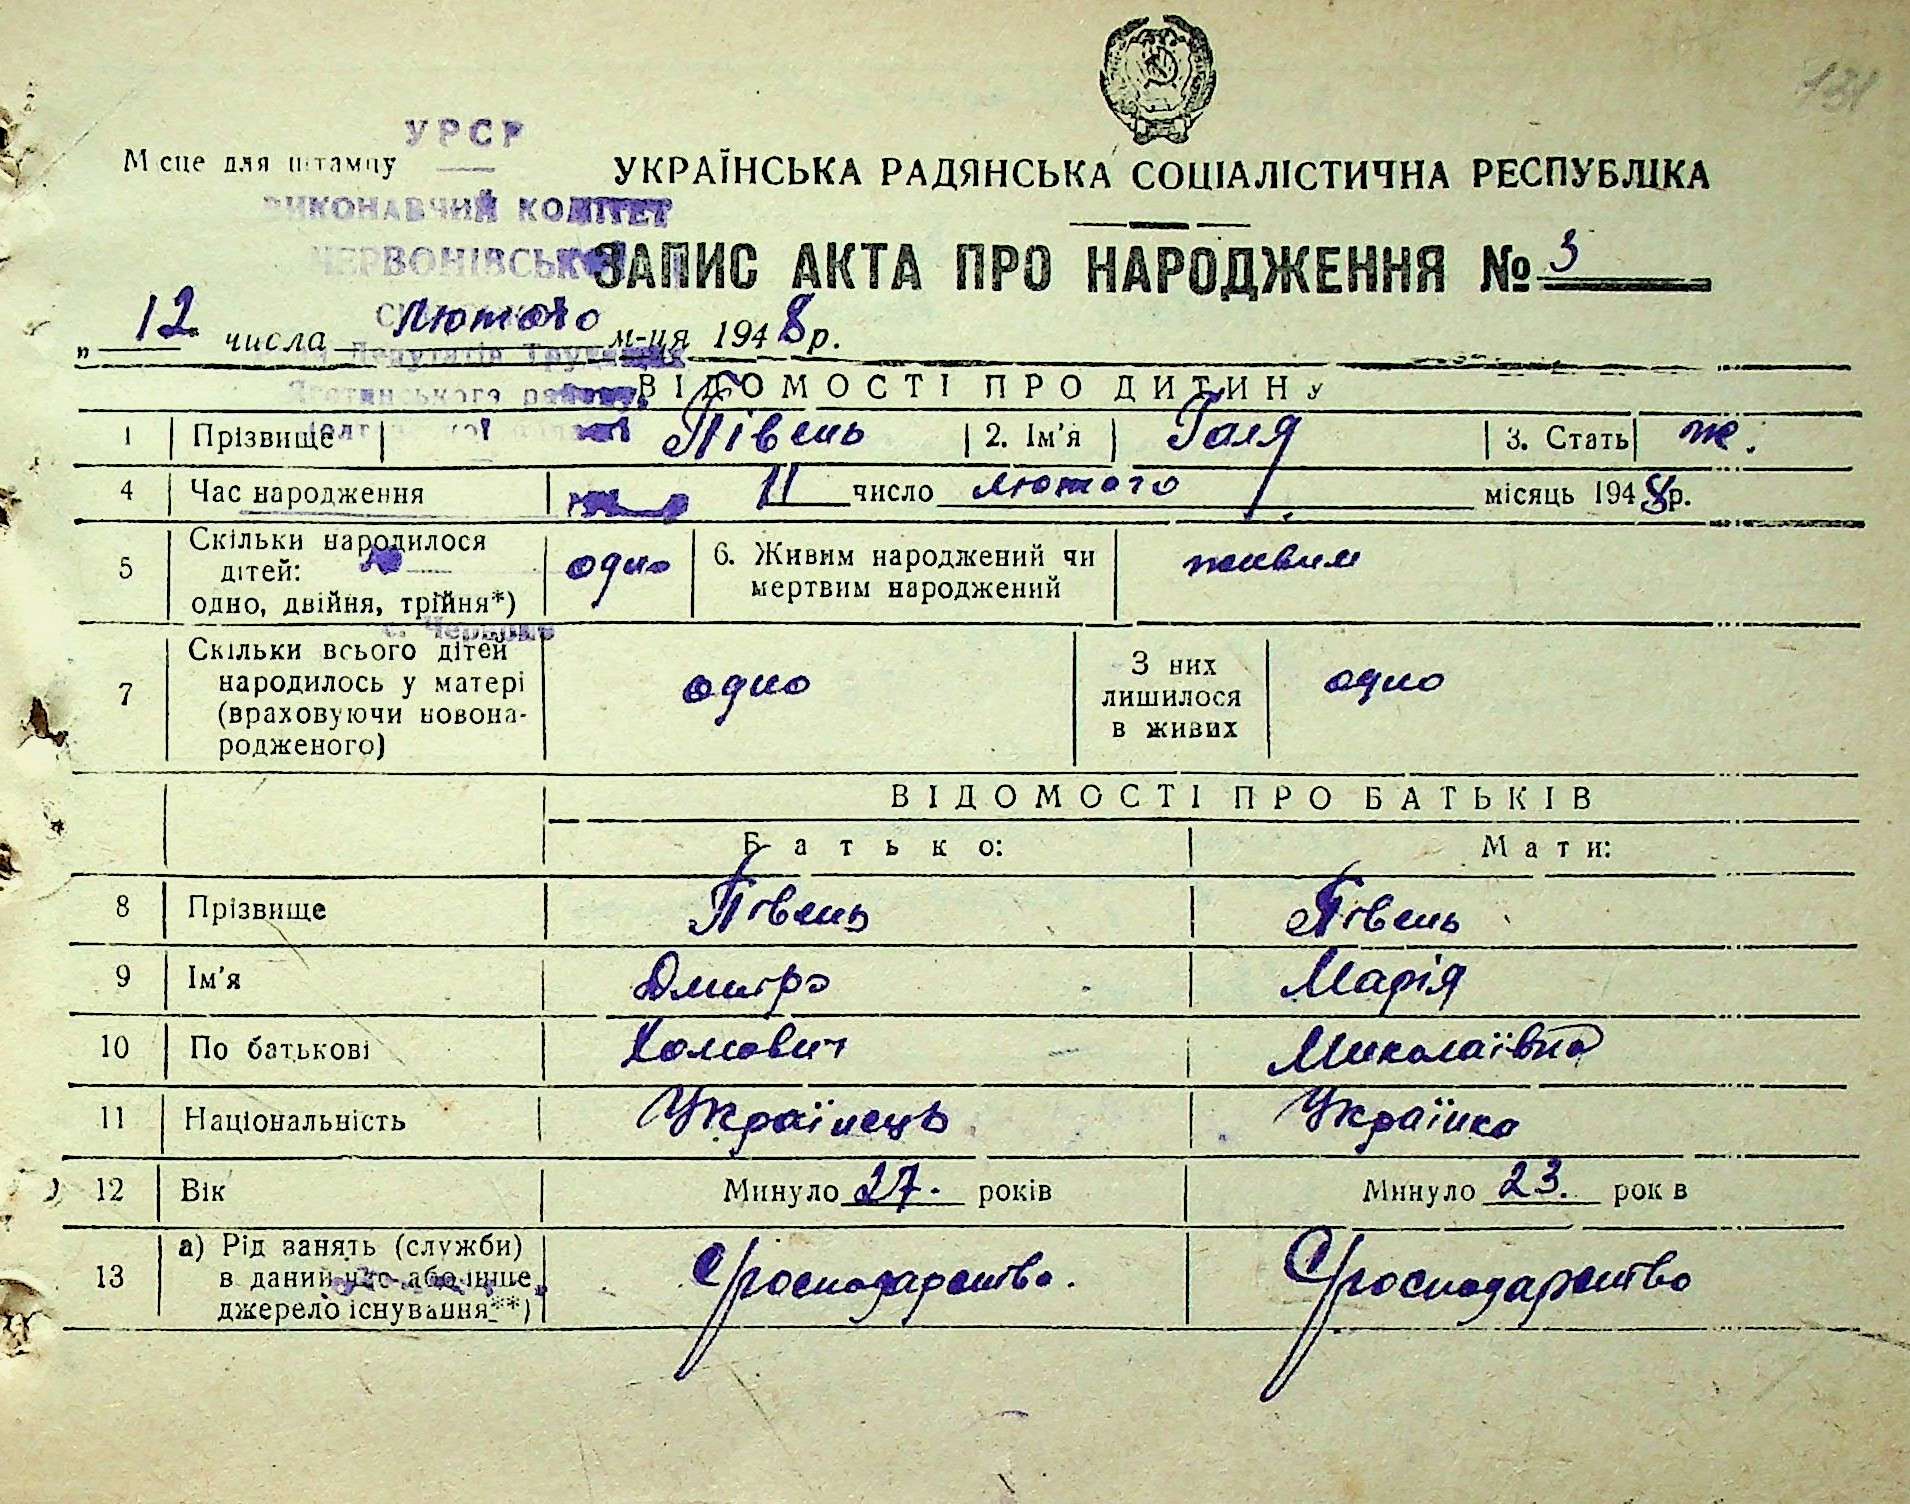 131
УРСР
Місце для штампу
УКРАЇНСЬКА РАДЯНСЬКА СОЦІАЛІСТИЧНА РЕСПУБЛІКА
ВИКОНАВЧИЙ КОМІТЕТ
ЧЕРВОНІВСЬКОЇ
ЗАПИС АКТА ПРО НАРОДЖЕННЯ № 3
„ 12 числа лютого м-ця 1948 р.
Депутатів Трудящих
Яготинського району
ВІДОМОСТІ ПРО ДИТИНУ
1 Прізвище Півень 2. Ім'я Галя 3. Стать ж.
4 Час народження 11 число лютого місяць 1948 р.
5 Скільки народилося дітей: одно, двійня, трійня*) одно 6. Живим народжений чи мертвим народжений живим
7 Скільки всього дітей народилось у матері (враховуючи новонародженого) одно З них лишилося в живих одно
ВІДОМОСТІ ПРО БАТЬКІВ
Батько: Мати:
8 Прізвище Півень Півень
9 Ім'я Дмитро Марія
10 По батькові Хомович Миколаївна
11 Національність Українець Українка
12 Вік Минуло 27. років Минуло 23. років
13 а) Рід занять (служби) в даний час або інше джерело існування**)